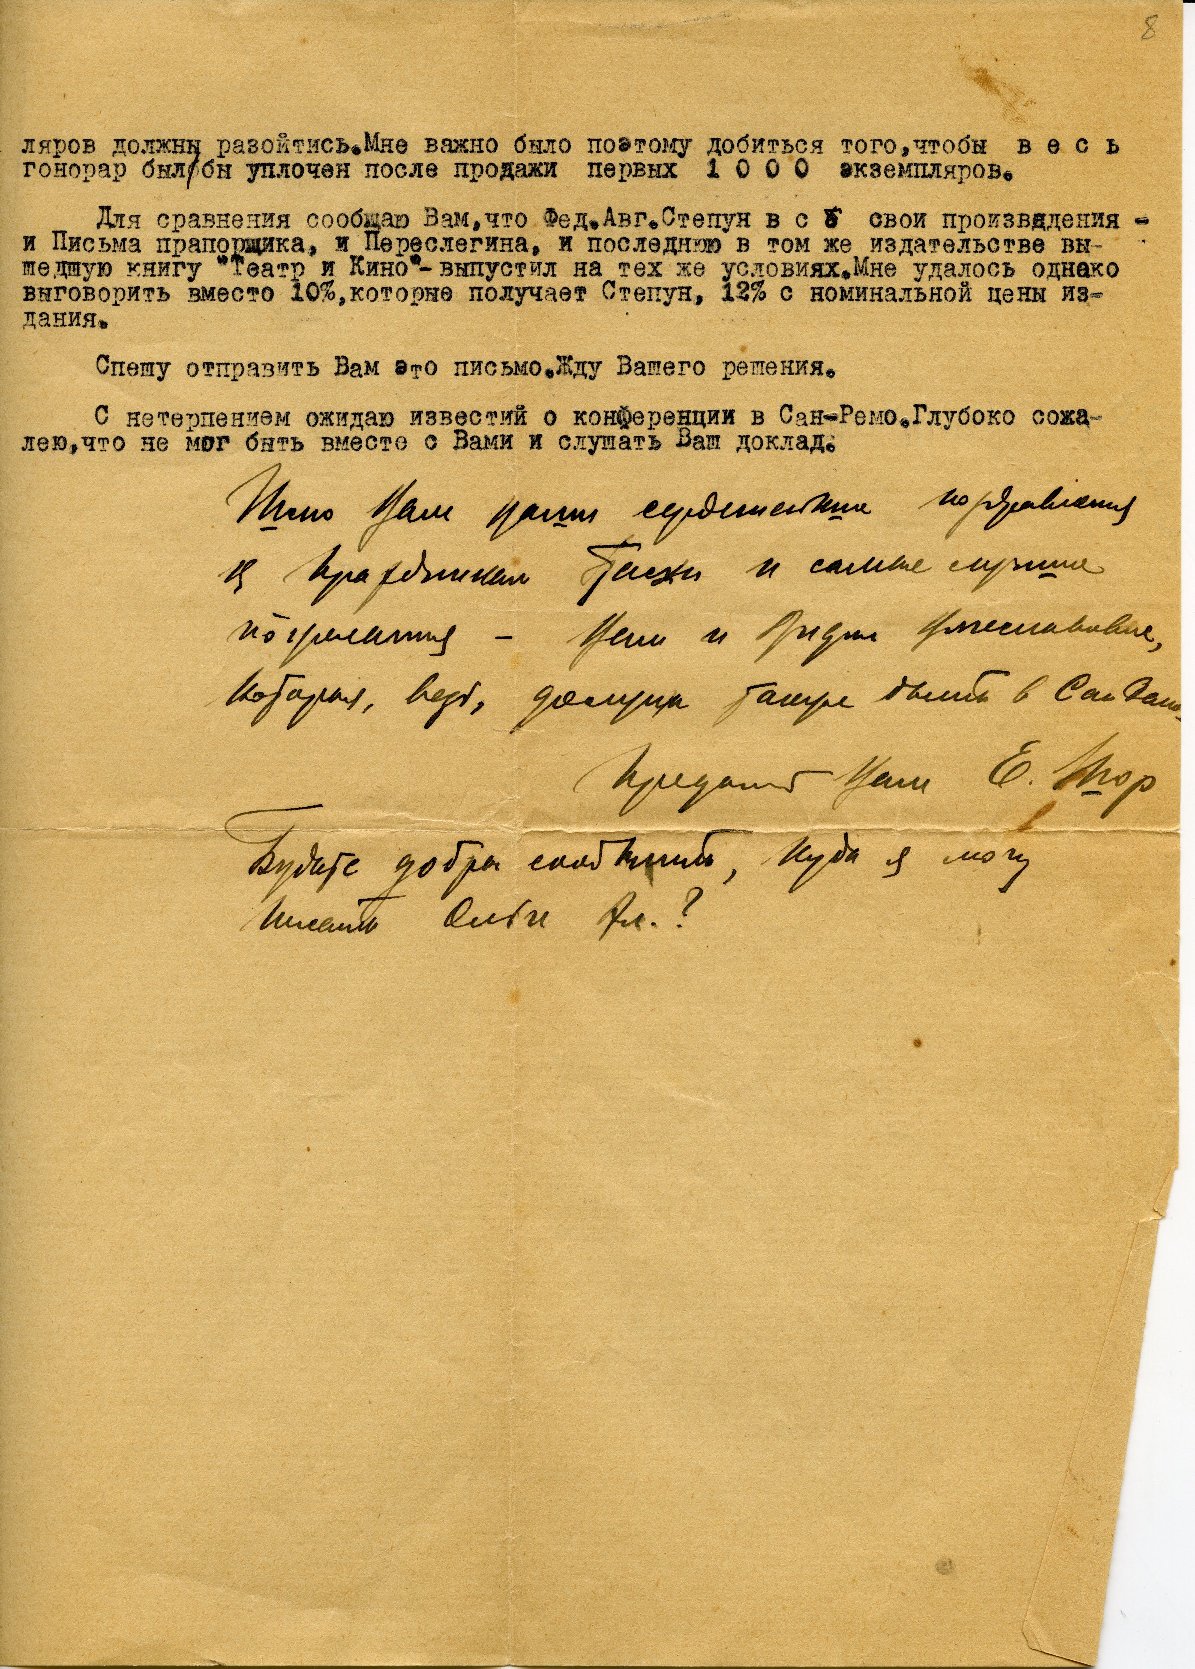 8
ляров должны разойтись.Мне важно было поэтому добиться того,чтобы в е с ь
гонорар был/бы уплочен после продажи первых 1 0 0 0 экземпляров.
Для сравнения сообщаю Вам,что Фед.Авг.Степун в с ѣ свои произведения -
и Письма прапорщика, и Переслегина, и последнюю в том же издательстве вы-
шедшую книгу "Театр и Кино"-выпустил на тех же условиях.Мне удалось однако
выговорить вместо 10%,которые получает Степун, 12% с номинальной цены из-
дания.
Спешу отправить Вам это письмо.Жду Вашего решения.
С нетерпением ожидаю известий о конференции в Сан-Ремо.Глубоко сожа-
лею,что не мог быть вместе с Вами и слушать Ваш доклад.
Шлю Вам наши сердечнейшие поздравления
к праздникам Пасхи и самые лучшие
пожелания – Вам и Лидии Вячеславовне,
которая, ведь, должна также быть в Сан Ремо.
Преданный Вам Е. Шор
Будьте добры сообщить, куда я могу
писать Ольге Ал.?